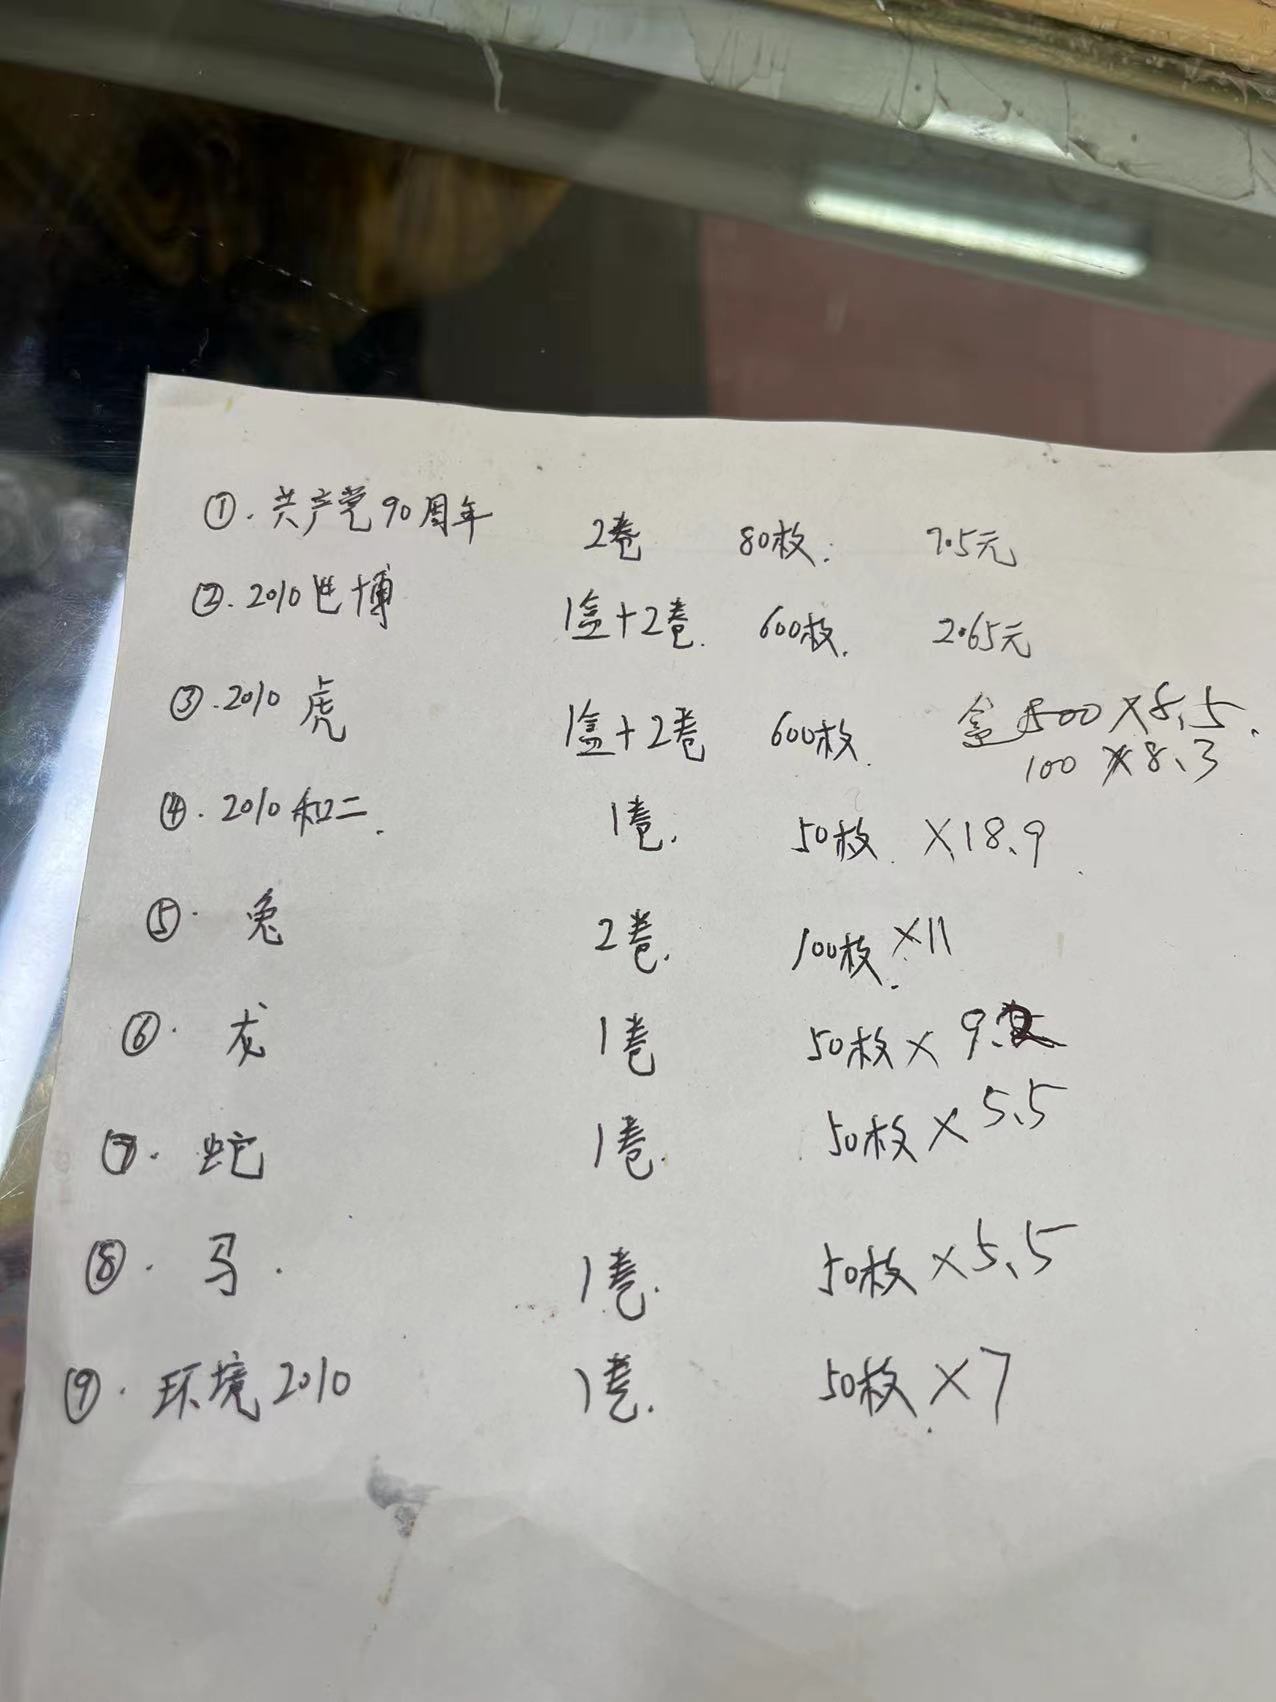 ①.共产党90周年 2卷 80枚. 7.5元
②.2010世博 1盒+2卷. 600枚. 2.65元
③.2010 虎 1盒+2卷 600枚. 盒 500×8.5.
100×8.3
④.2010和二. 1卷. 50枚 ×18.9
⑤. 兔 2卷. 100枚. ×11
⑥. 龙 1卷 50枚×9.2
⑦. 蛇 1卷. 50枚×5.5
⑧. 马. 1卷. 50枚×5.5
⑨. 环境2010 1卷. 50枚×7